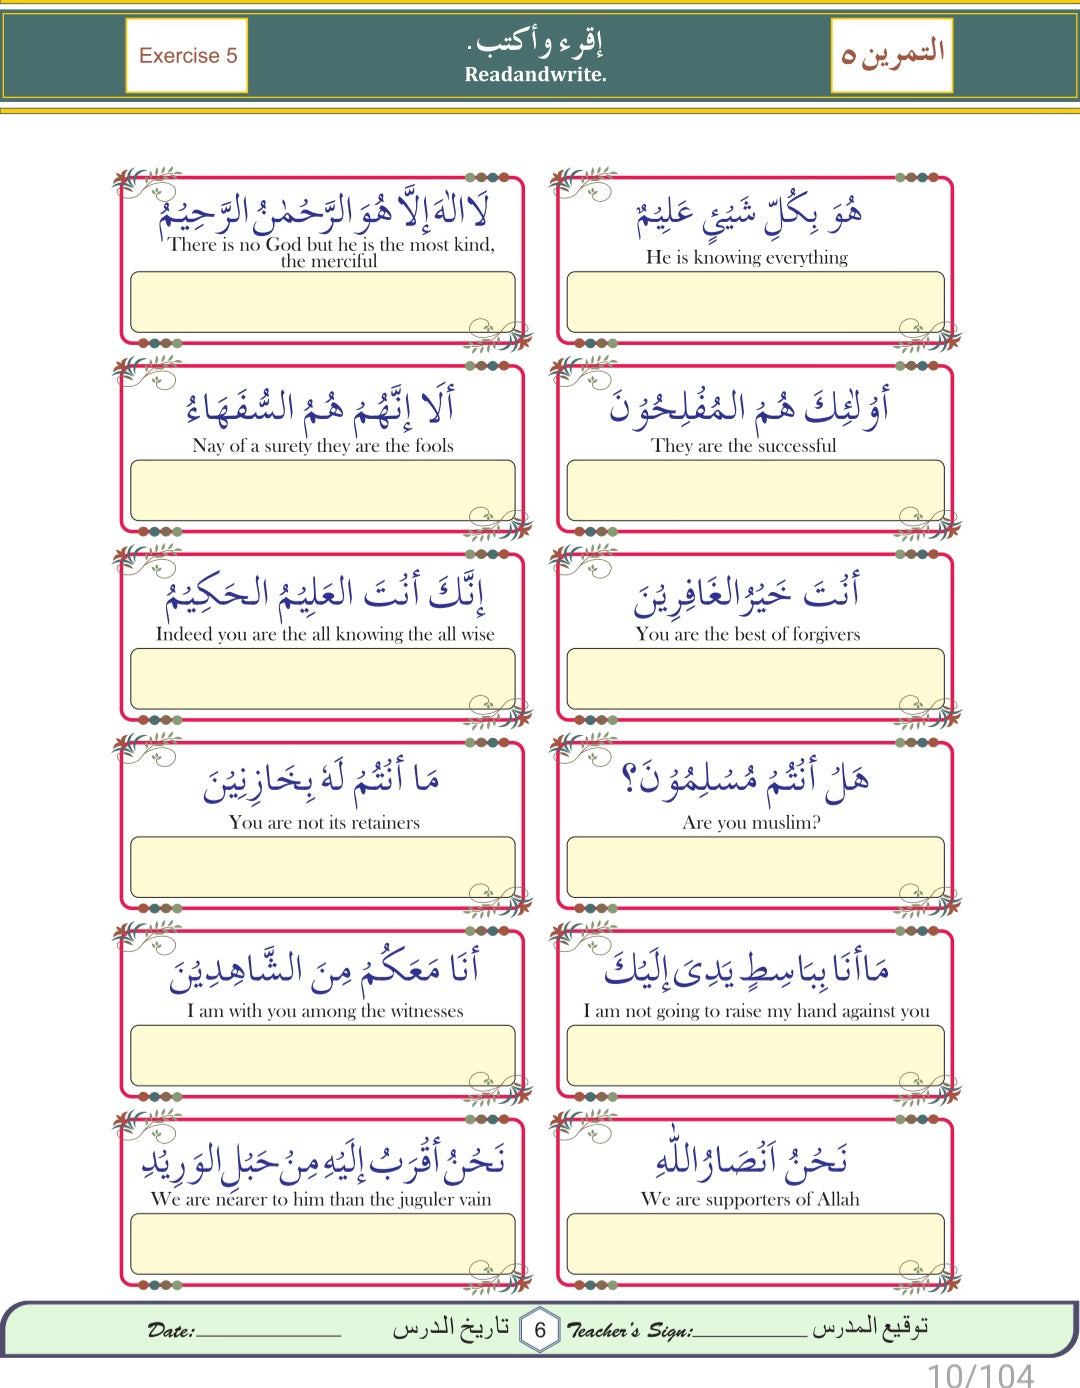 Exercise 5
إقرء وأكتب.
Readandwrite.
التمرين ٥
هُوَ بِكُلِّ شَيْئٍ عَلِيْمٌ
He is knowing everything
لَااِلٰهَ إِلَّا هُوَ الرَّحْمٰنُ الرَّحِيْمُ
There is no God but he is the most kind,
the merciful
أُوْلٰئِكَ هُمُ المُفْلِحُوْنَ
They are the successful
ألَا إِنَّهُمْ هُمُ السُّفَهَاءُ
Nay of a surety they are the fools
أنْتَ خَيْرُالغَافِرِيْنَ
You are the best of forgivers
إِنَّكَ أنْتَ العَلِيْمُ الحَكِيْمُ
Indeed you are the all knowing the all wise
هَلْ أنْتُمْ مُسْلِمُوْنَ؟
Are you muslim?
مَا أنْتُمْ لَهٗ بِخَازِنِيْنَ
You are not its retainers
مَاأنَا بِبَاسِطٍ يَدِىَ إِلَيْكَ
I am not going to raise my hand against you
أنَا مَعَكُمْ مِنَ الشَّاهِدِيْنَ
I am with you among the witnesses
نَحْنُ اَنْصَارُاللّٰهِ
We are supporters of Allah
نَحْنُ أقْرَبُ إِلَيْهِ مِنْ حَبْلِ الوَرِيْدِ
We are nearer to him than the juguler vain
Date:______________ تاريخ الدرس
6
Teacher's Sign:______________ توقيع المدرس
10/104